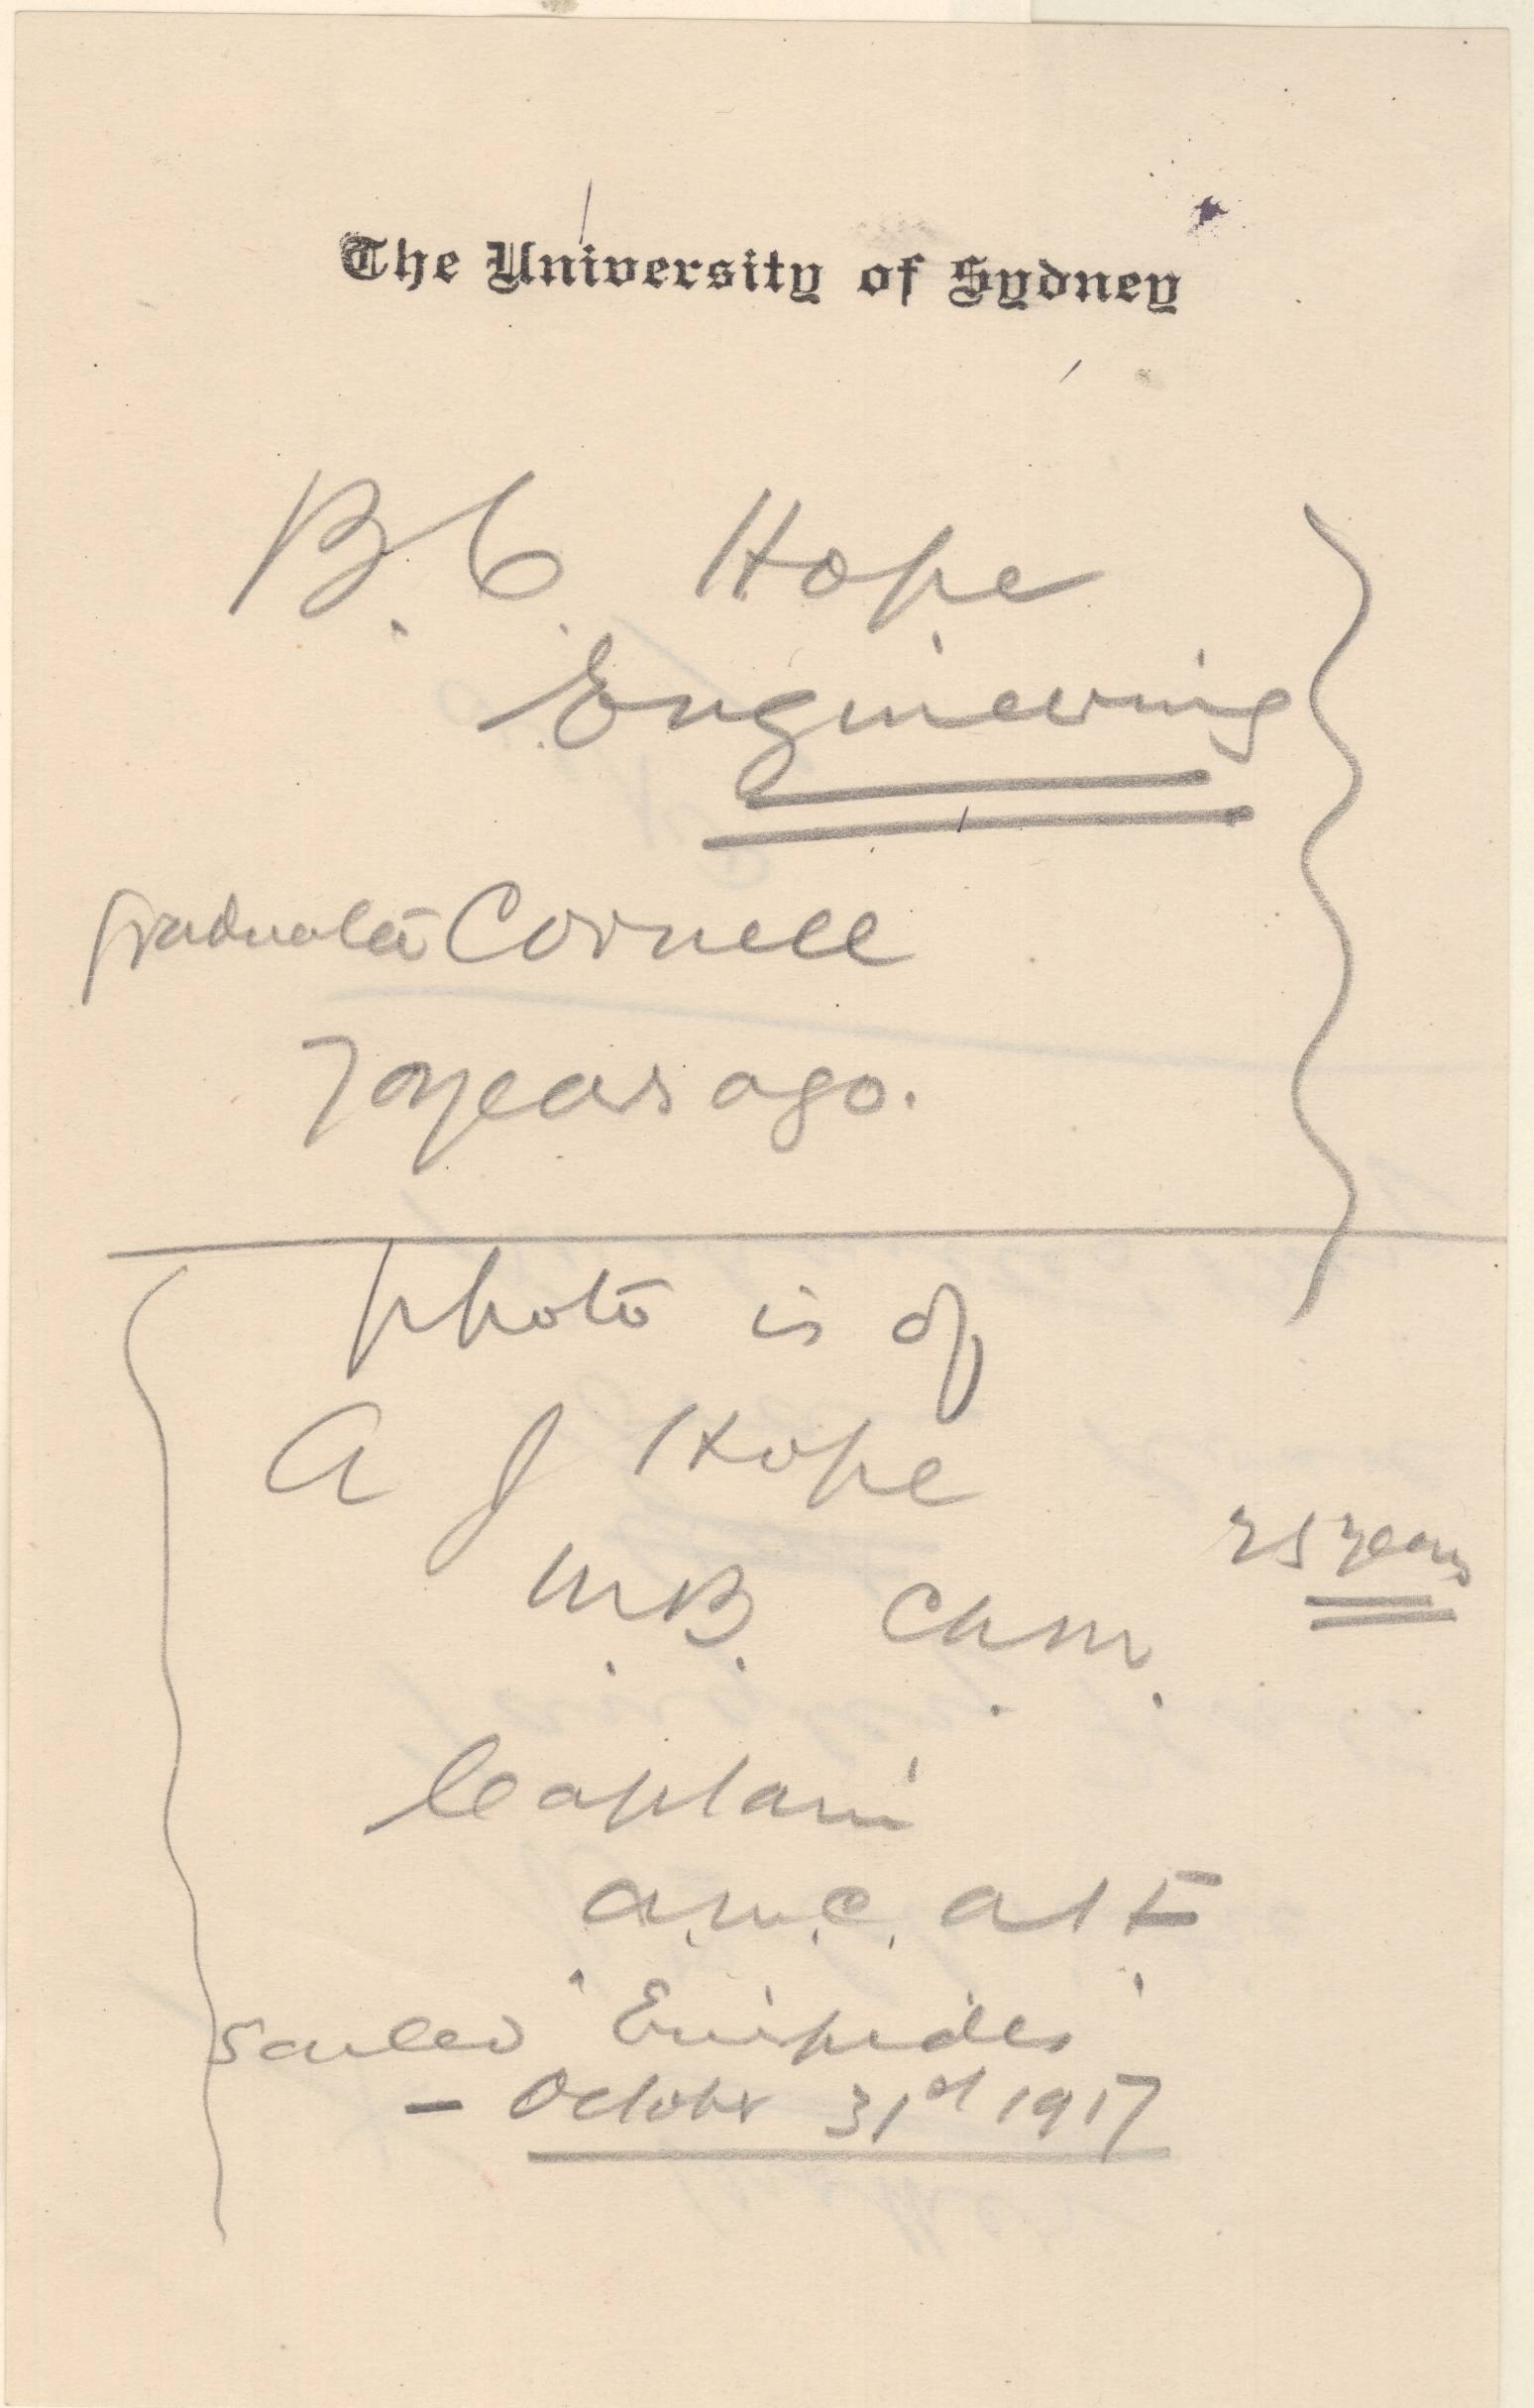 The University of Sydney
B. C. Hope
Engineering
graduate Cornell
7 years ago.
photo is of
A J Hope
M.B. Ch.M.
25 years
Captain
A.M.C. AIF
Sailed "Euripides"
- October 31st 1917